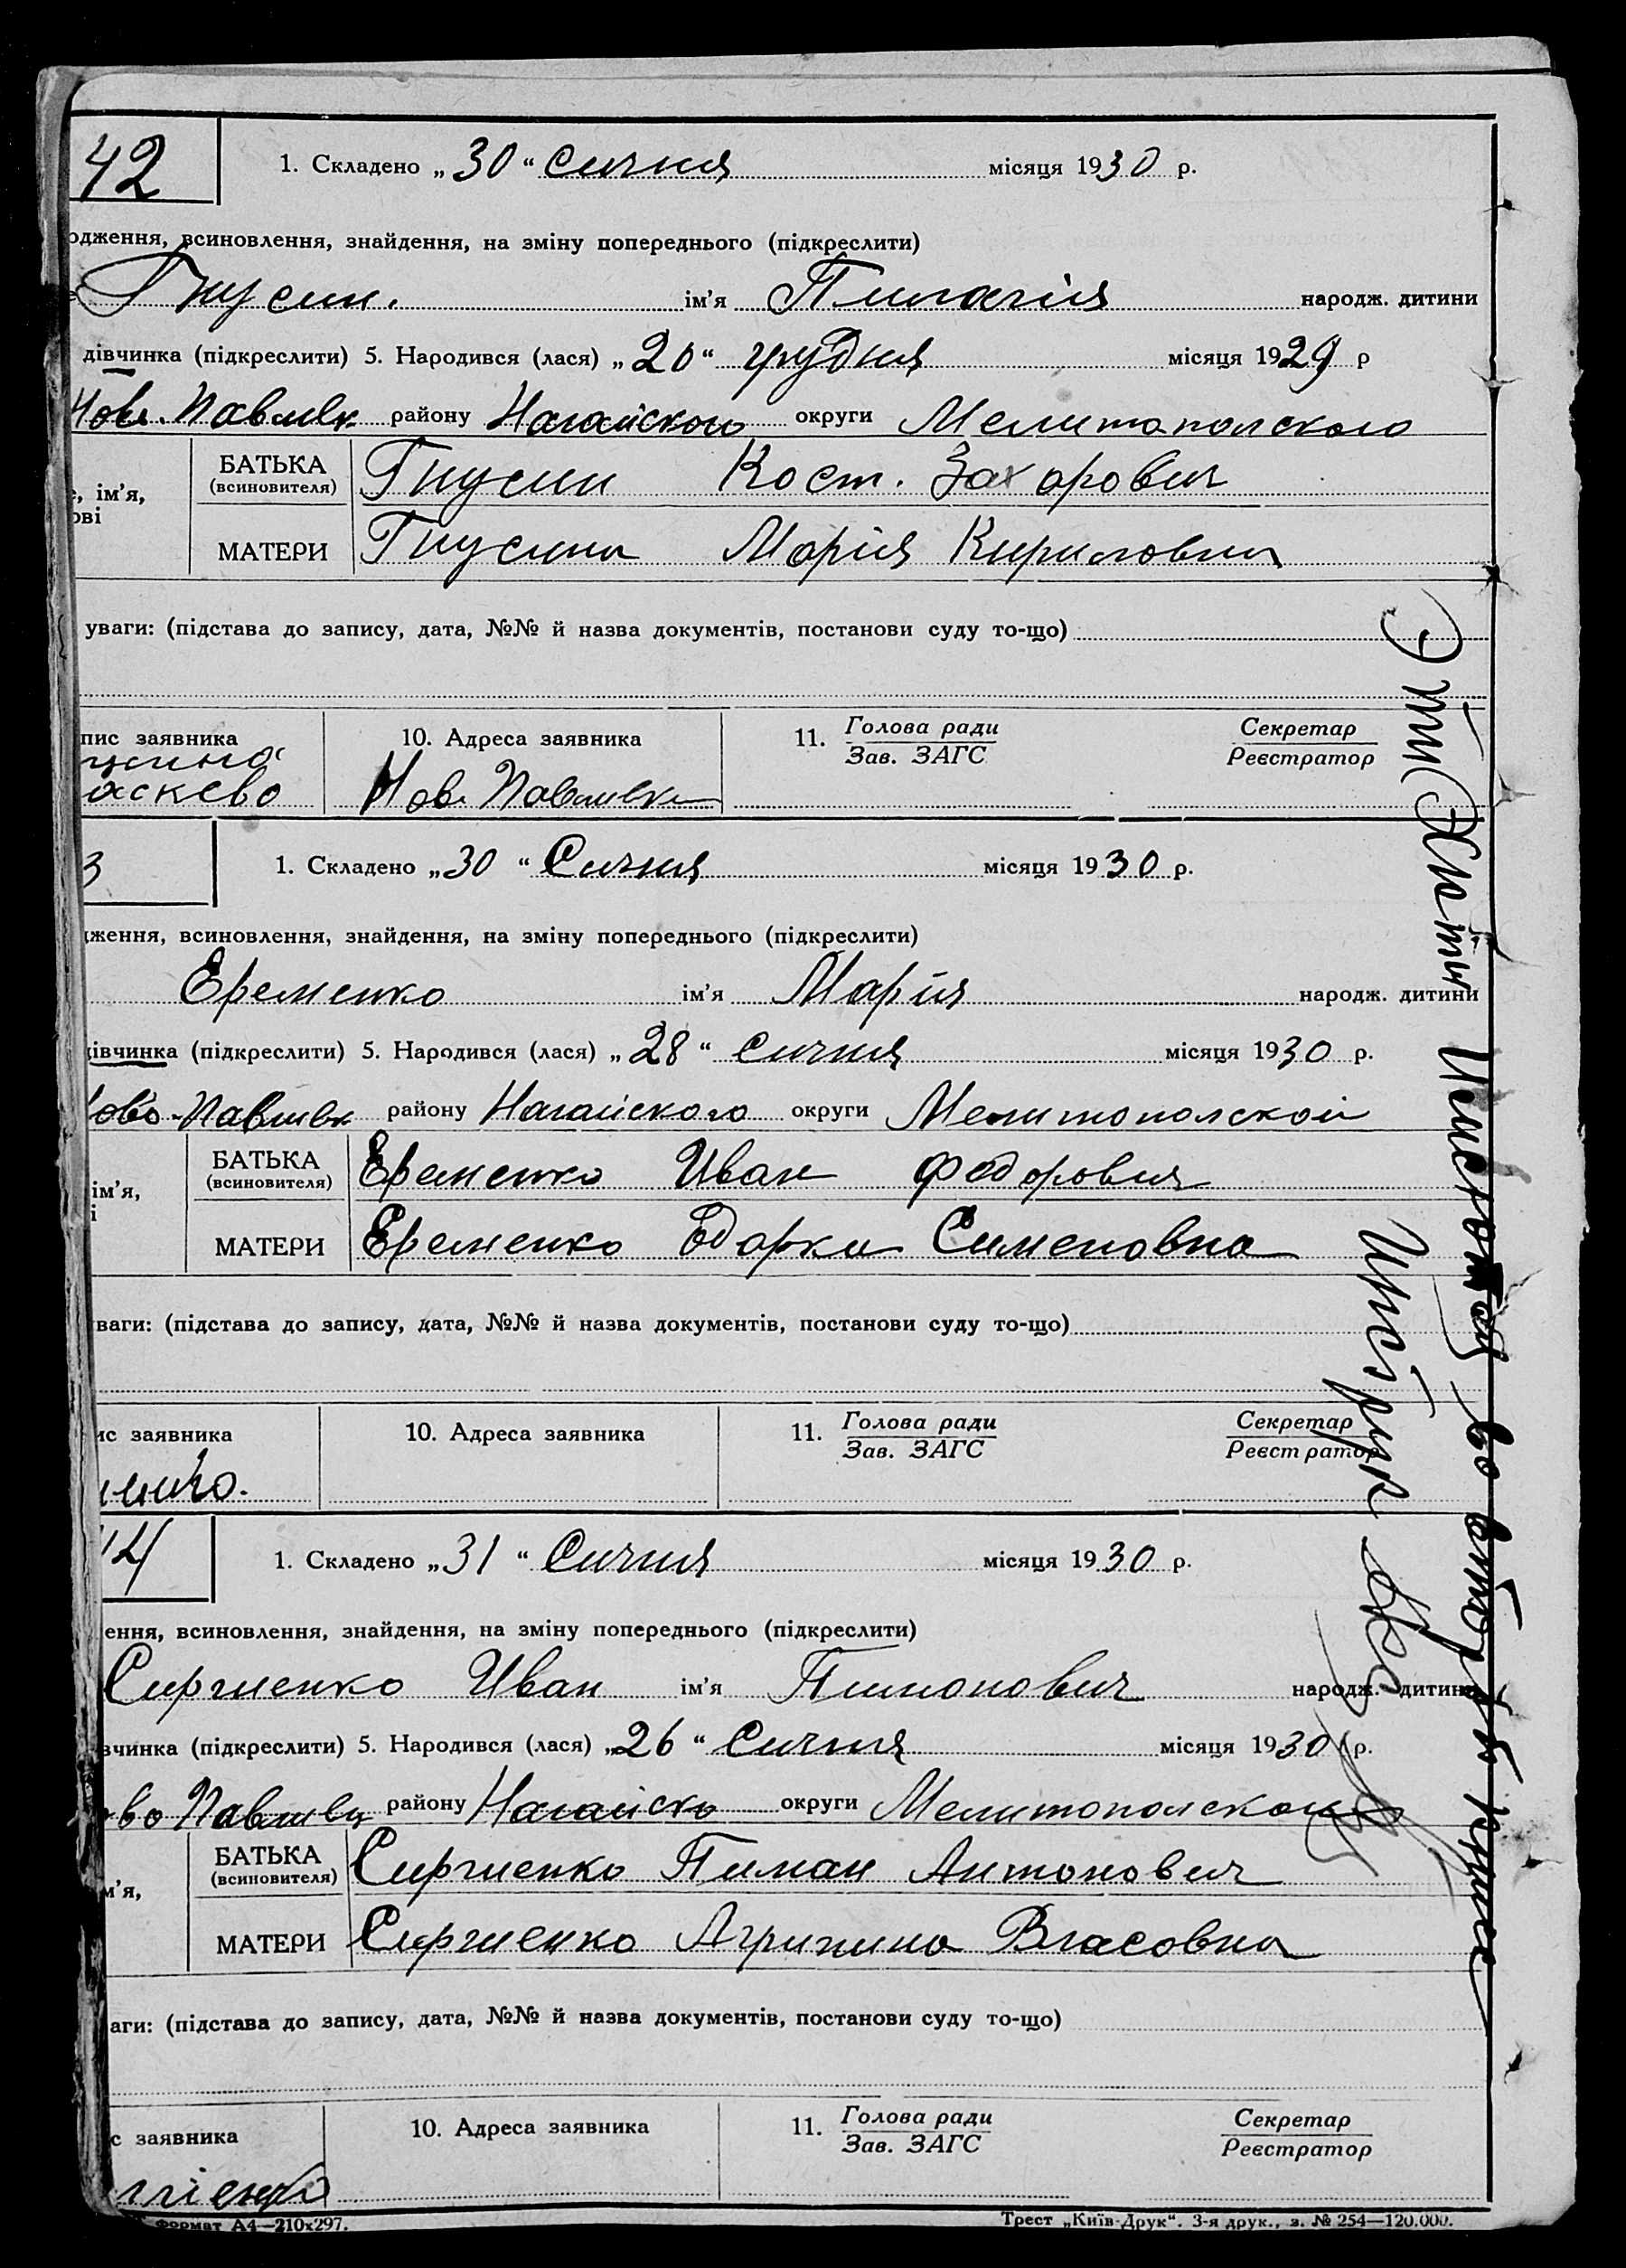 42
1. Складено „30“ сичня місяця 1930 р.
одження, всиновлення, знайдення, на зміну попереднього (підкреслити)
Гнусин. ім’я Пилагія народж. дитини
дівчинка (підкреслити) 5. Народився (лася) „20“ грудня місяця 1929 р
Ново-Павливк району Нагайского округи Мелитополского
е, ім’я,
ові
БАТЬКА
(всиновителя)
Гнусин Кост. Захорович
МАТЕРИ
Гнусина Марія Кириловна
уваги: (підстава до запису, дата, №№ й назва документів, постанови суду то-що)
пис заявника
10. Адреса заявника
11. Голова ради
Зав. ЗАГС
Секретар
Реєстратор
Нов. Павливка
3
1. Складено „30“ Сичня місяця 1930 р.
дження, всиновлення, знайдення, на зміну попереднього (підкреслити)
Еременко ім’я Марія народж. дитини
дівчинка (підкреслити) 5. Народився (лася) „28“ сичня місяця 1930 р.
ово-Павливк району Нагайского округи Мелитополской
ім’я,
і
БАТЬКА
(всиновителя)
Еременко Иван Федорович
МАТЕРИ
Еременко Едорка Сименовна
ваги: (підстава до запису, дата, №№ й назва документів, постанови суду то-що)
ис заявника
10. Адреса заявника
11. Голова ради
Зав. ЗАГС
Секретар
Реєстратор
44
1. Складено „31“ Сичня місяця 1930 р.
ення, всиновлення, знайдення, на зміну попереднього (підкреслити)
Сиргиенко Иван ім’я Пимонович народж. дитини
вчинка (підкреслити) 5. Народився (лася) „26“ Сичня місяця 1930 р.
ово Павливц району Нагайско округи Мелитополского
м’я,
БАТЬКА
(всиновителя)
Сиргиенко Пиман Антонович
МАТЕРИ
Сиргиенко Агрипина Власовна
аги: (підстава до запису, дата, №№ й назва документів, постанови суду то-що)
с заявника
10. Адреса заявника
11. Голова ради
Зав. ЗАГС
Секретар
Реєстратор
Формат А4—210х297.
Трест „Київ-Друк“. 3-я друк., з. № 254—120.000.
Эти Акты
во второй книге